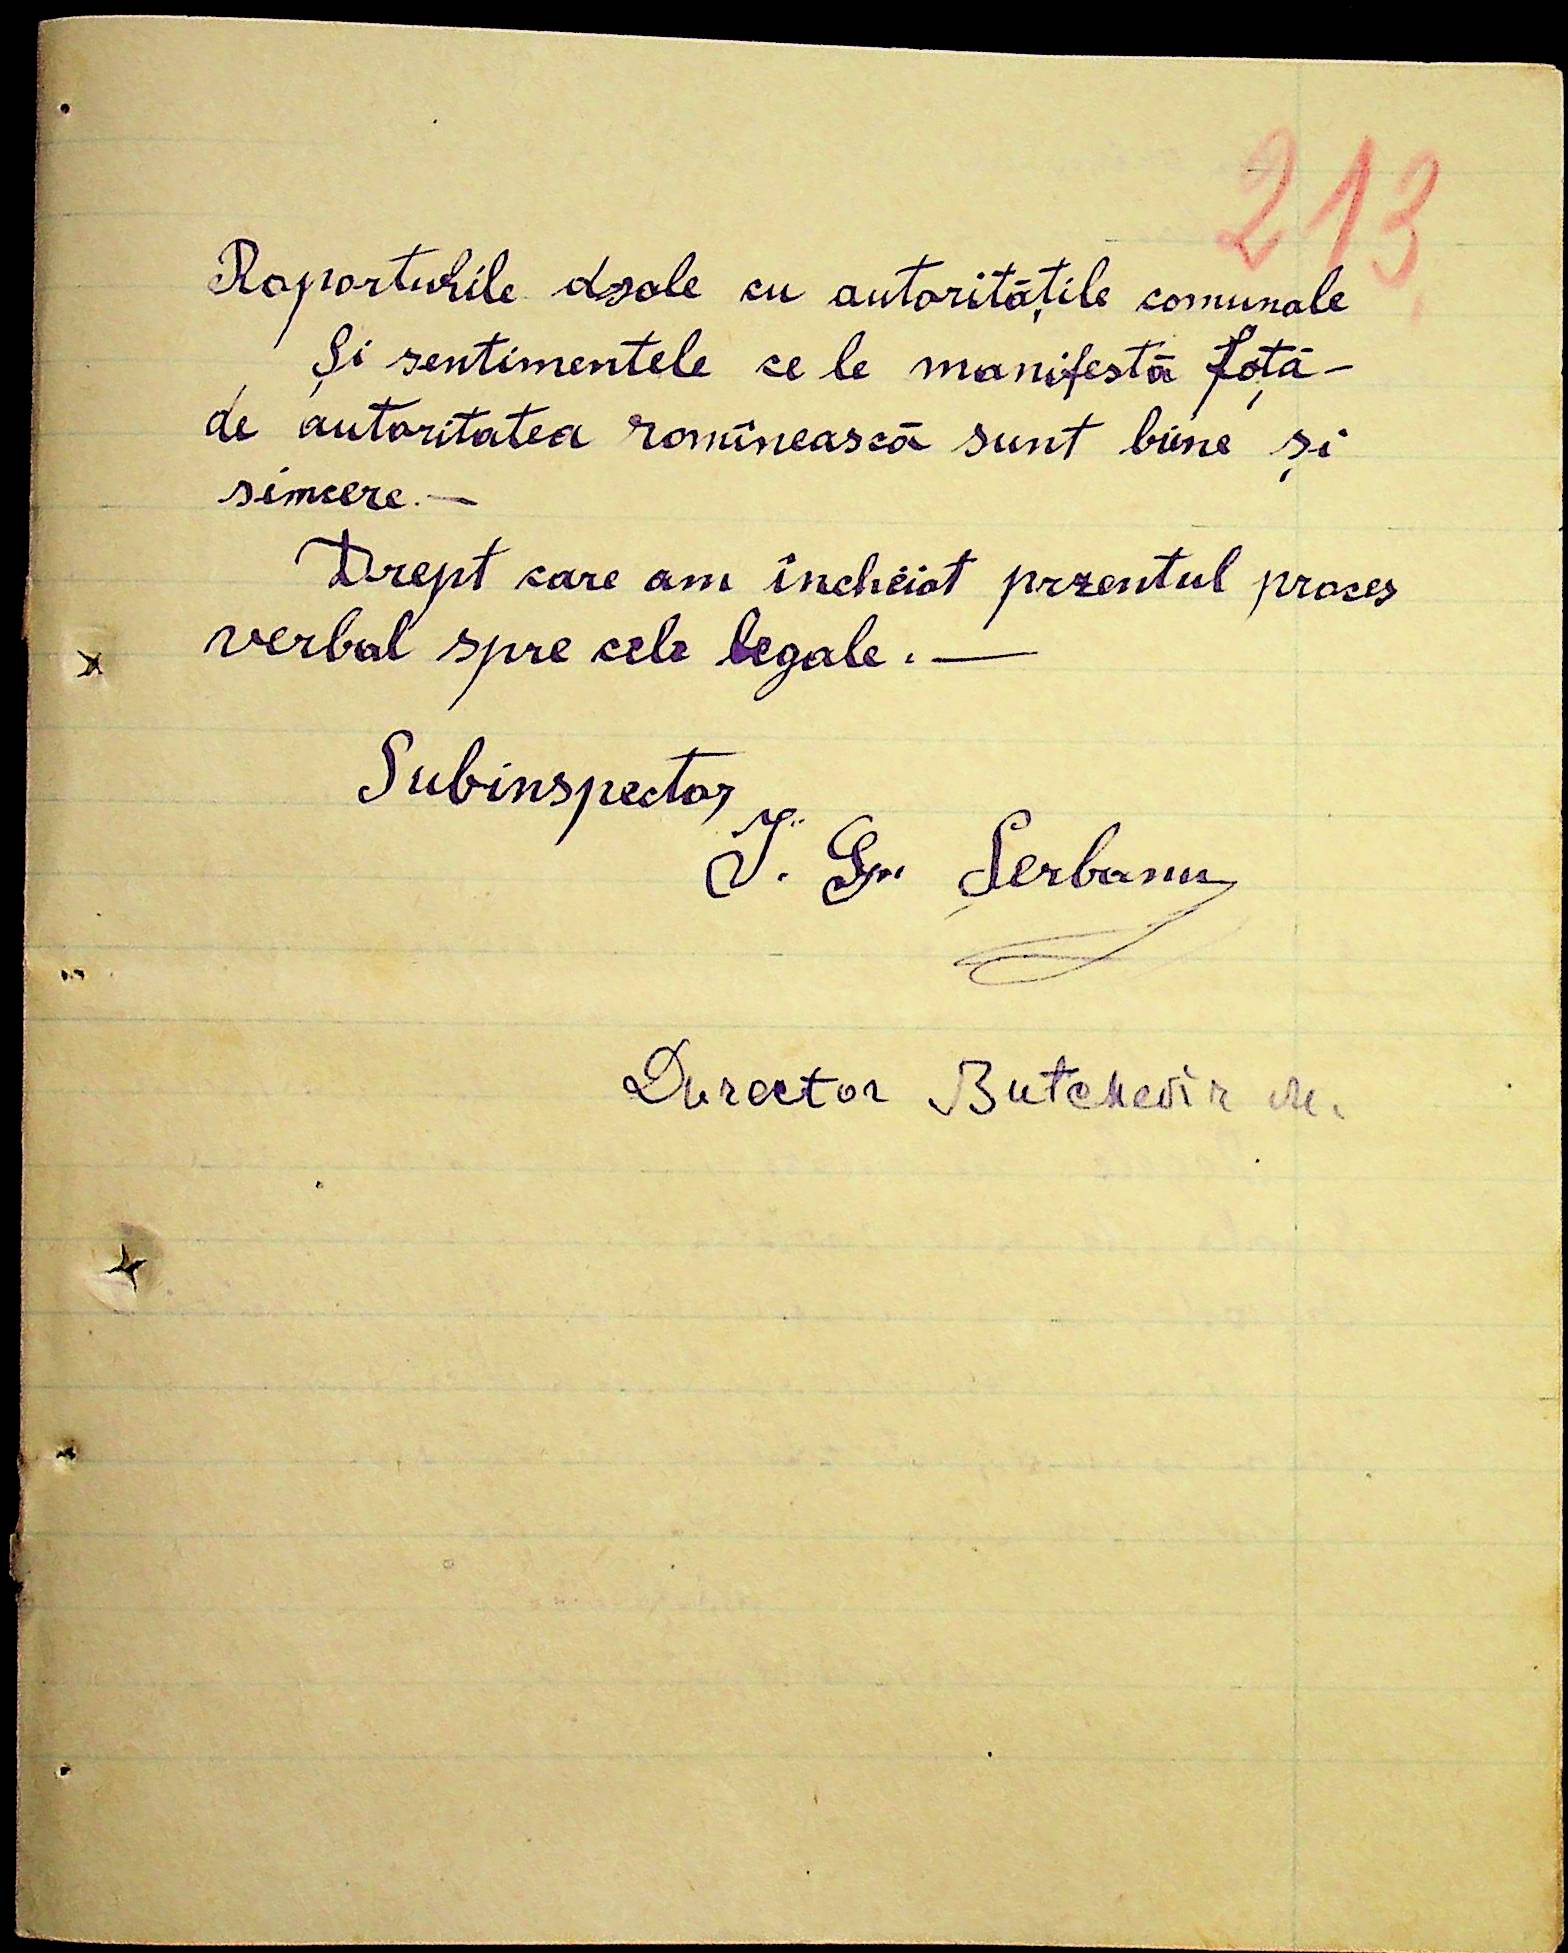 213
Raporturile dsale cu autoritățile comunale
și sentimentele ce le manifestă față-
de autoritatea romînească sunt bune și
sincere.—
Drept care am încheiat przentul proces
verbal spre cele legale.—
Subinspector,
I. Gr. Șerbanu
Director Butchevir M.